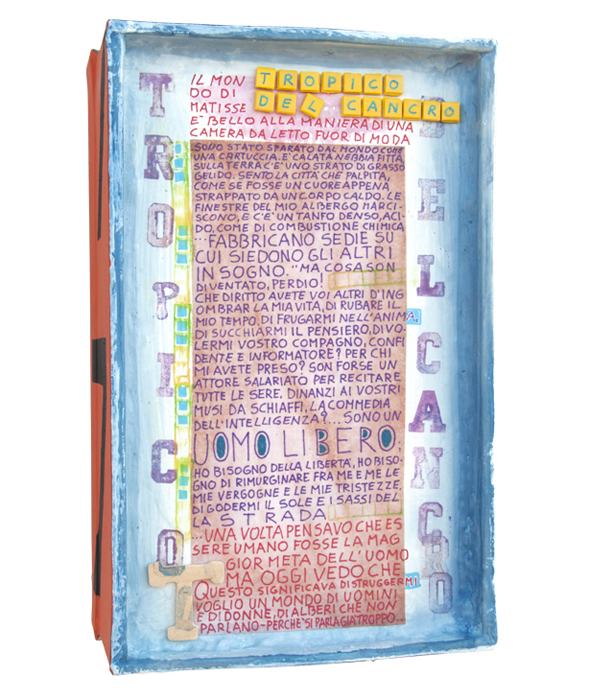 IL MON
DO DI
MATISSE
TROPICO
DEL CANCRO
E' BELLO ALLA MANIERA DI UNA
CAMERA DA LETTO FUOR DI MODA
SONO STATO SPARATO DAL MONDO COME
UNA CARTUCCIA. E' CALATA NEBBIA FITTA,
SULLA TERRA C'E' UNO STRATO DI GRASSO
GELIDO. SENTO LA CITTA' CHE PALPITA,
COME SE FOSSE UN CUORE APPENA
STRAPPATO DA UN CORPO CALDO. LE
FINESTRE DEL MIO ALBERGO MARCI-
SCONO, E C'E' UN TANFO DENSO, ACI-
DO, COME DI COMBUSTIONE CHIMICA
..."FABBRICANO SEDIE SU
CUI SIEDONO GLI ALTRI
IN SOGNO."..."MA COSA SON
DIVENTATO, PERDIO!
CHE DIRITTO AVETE VOI ALTRI D'ING
OMBRAR LA MIA VITA, DI RUBARE IL
MIO TEMPO, DI FRUGARMI NELL'ANIMA,
DI SUCCHIARMI IL PENSIERO, DI VO-
LERMI VOSTRO COMPAGNO, CONFI
DENTE E INFORMATORE? PER CHI
MI AVETE PRESO? SON FORSE UN
ATTORE SALARIATO PER RECITARE
TUTTE LE SERE, DINANZI AI VOSTRI
MUSI DA SCHIAFFI, LA COMMEDIA
DELL'INTELLIGENZA?... SONO UN
UOMO LIBERO.
HO BISOGNO DELLA LIBERTA', HO BISO-
GNO DI RIMURGINARE FRA ME E ME LE
MIE VERGOGNE E LE MIE TRISTEZZE,
DI GODERMI IL SOLE E I SASSI DEL
LA STRADA
...UNA VOLTA PENSAVO CHE ES
SERE UMANO FOSSE LA MAG
GIOR META DELL'UOMO
MA OGGI VEDO CHE
QUESTO SIGNIFICAVA DISTRUGGERMI
VOGLIO UN MONDO DI UOMINI
E DI DONNE, DI ALBERI CHE NON
PARLANO-PERCHE' SI PARLA GIA TROPPO...
TROPICO
DEL CANCRO
T